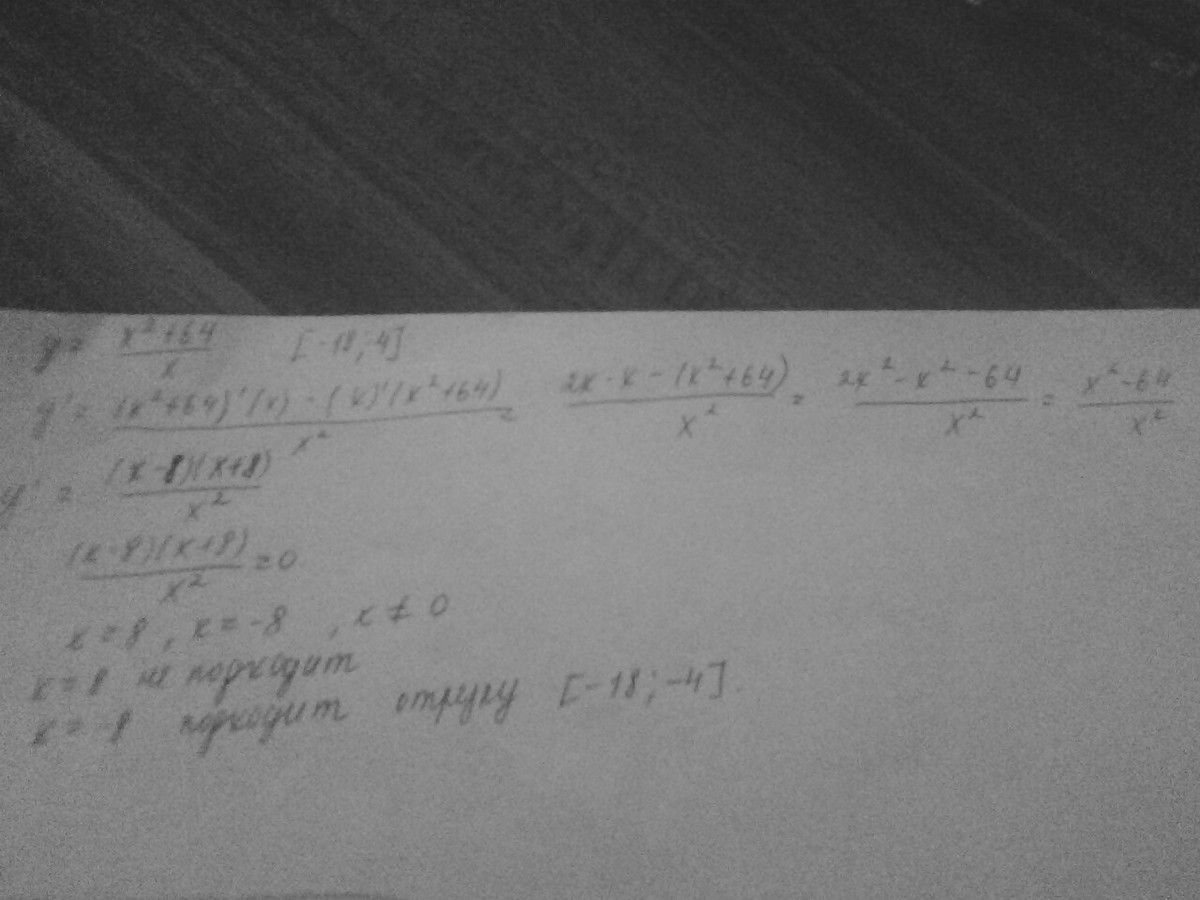 y = (x²+64)/x [-18;-4]
y' = ((x²+64)'(x) - (x)'(x²+64))/x² = (2x·x - (x²+64))/x² = (2x² - x² - 64)/x² = (x²-64)/x²
y' = ((x-8)(x+8))/x²
((x-8)(x+8))/x² = 0
x=8, x=-8, x≠0
x=8 не подходит
x=-8 подходит отрезку [-18;-4].